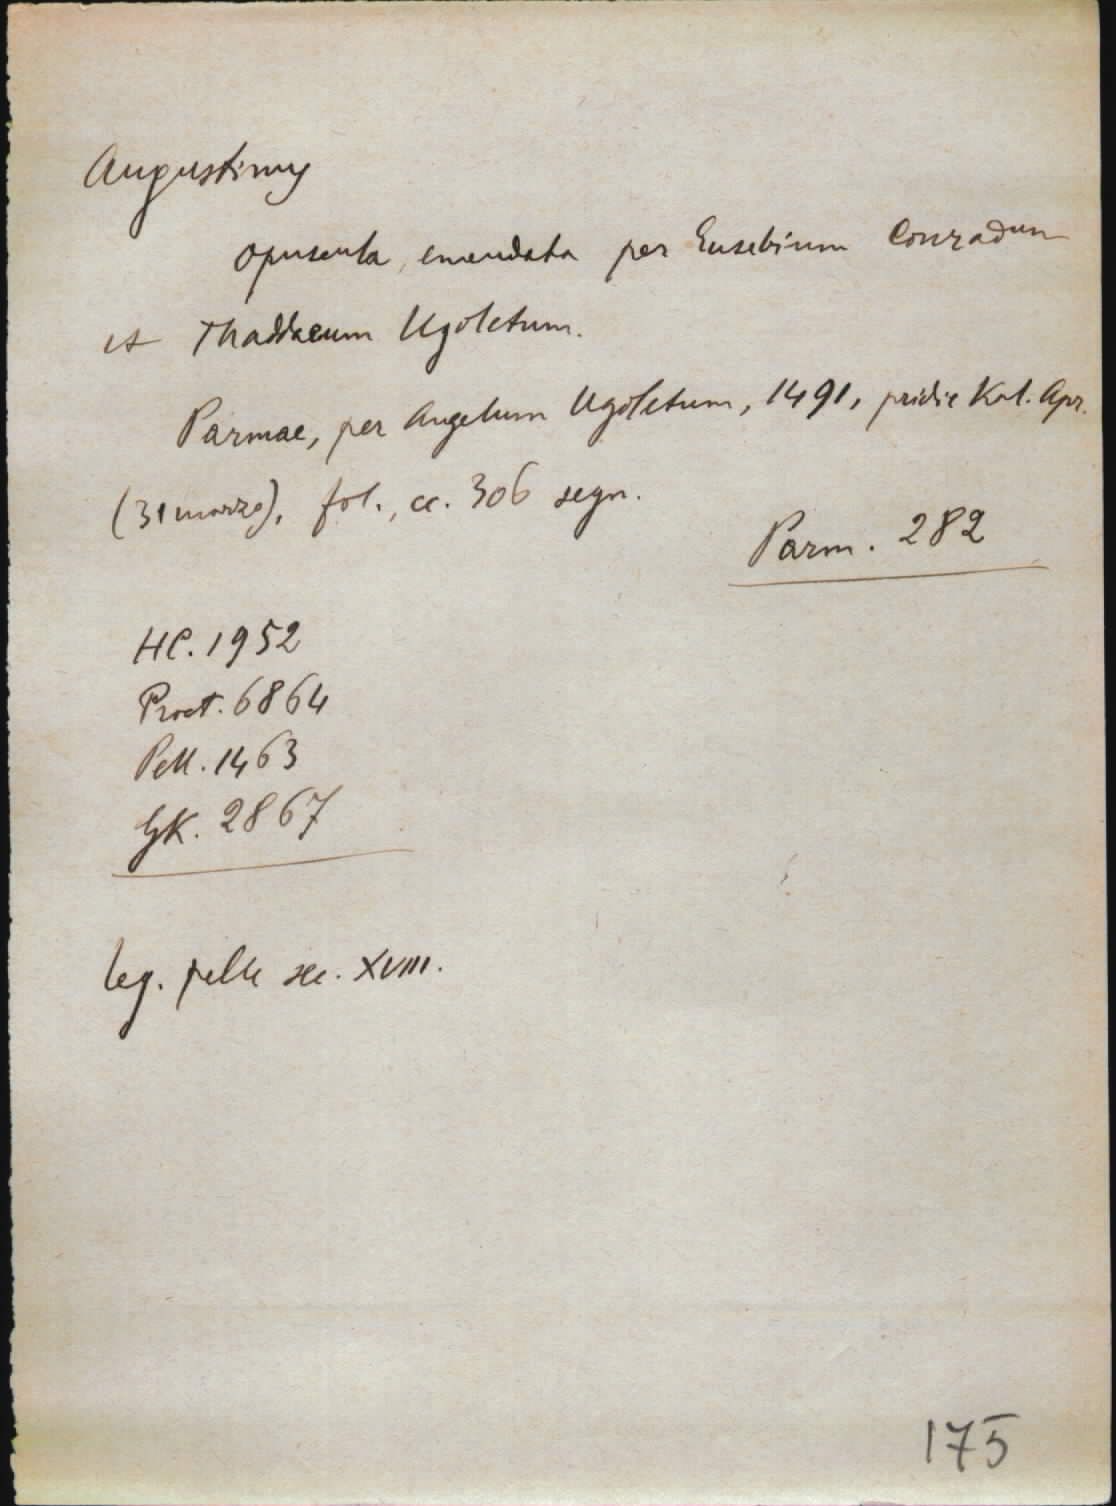 Augustinus
Opuscula, emendata per Eusebium Conradum
et Thaddaeum Ugoletum.
Parmae, per Angelum Ugoletum, 1491, pridie Kal. Apr.
(31 marzo), fol., cc. 306 segn.
Parm. 282
HC. 1952
Proct. 6864
Pell. 1463
GK. 2867
leg. pelle sec. XVIII.
175